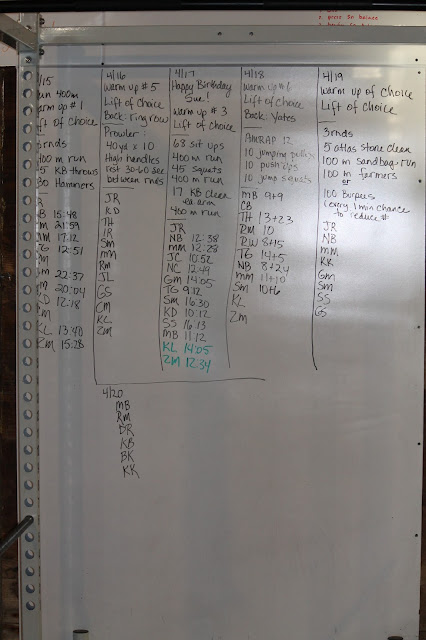 4/15
400m
#1
of Choice
rnds
m run
KB throws
30 Hammers
15:48
21:59
17:12
12:51
22:37
20:04
KD 12:18
KL 13:40
ZM 15:28
4/16
warm up #5
Lift of Choice
Back: ring row
Prowler:
40yds x 10
High handles
rest 30-60 sec
between rnds
JR
KD
TH
JR
SM
MM
RM
JL
GS
CM
KL
ZM
4/17
Happy Birthday
Sue!
warm up #3
Lift of Choice
68 sit ups
400m run
45 squats
400m run
17 KB clean
ea arm
400m run
JR
NB 12:38
MM 12:28
JC 10:52
NC 12:49
GM 14:05
TG 9:12
SM 16:30
KD 10:12
SS 16:13
MB 11:12
KL 14:05
ZM 12:34
4/18
warm up #6
Lift of Choice
Back: Yates
AMRAP 12
10 jumping pullups
10 push ups
10 jump squats
MB 9+9
CB
TH 13+23
RM 10
RW 8+15
TG 14+5
NB 8+24
MM 11+10
SM 10+6
KL
ZM
4/19
warm up of choice
Lift of Choice
3 rnds
5 atlas stone clean
100 m sandbag run
100 m farmers
or
100 Burpees
(every 1 min chance
to reduce #
JR
NB
MM
KK
GM
SM
SS
GS
4/20
MB
RM
DR
KB
BK
KK